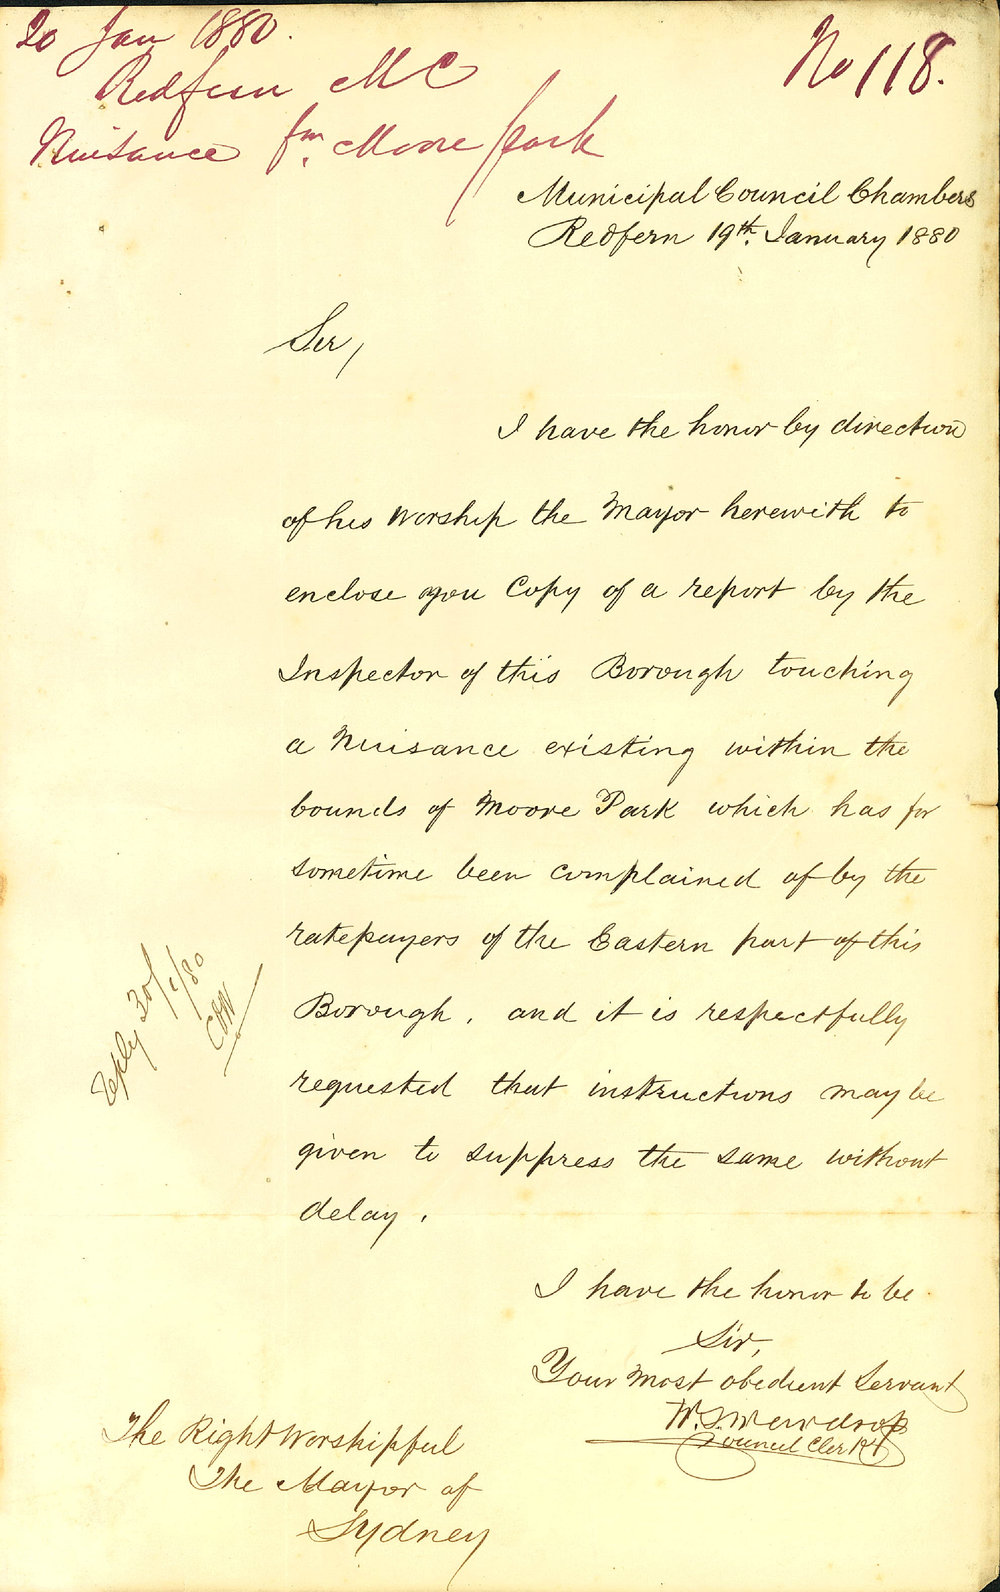 20 Jan 1880.
No 118.
Redfern M C
Nuisance fm. Moore Park
Municipal Council Chambers
Redfern 19th. January 1880
Sir,
I have the honor by direction
of his Worship the Mayor herewith to
enclose you Copy of a report by the
Inspector of this Borough touching
a Nuisance existing within the
bounds of Moore Park which has for
sometime been complained of by the
ratepayers of the Eastern part of this
Borough, and it is respectfully
requested that instructions may be
given to suppress the same without
delay.
Reply 30/1/80
I have the honor to be
Sir,
Your most obedient Servant
W.S. Wardrop
Council Clerk
The Right Worshipful
The Mayor of
Sydney